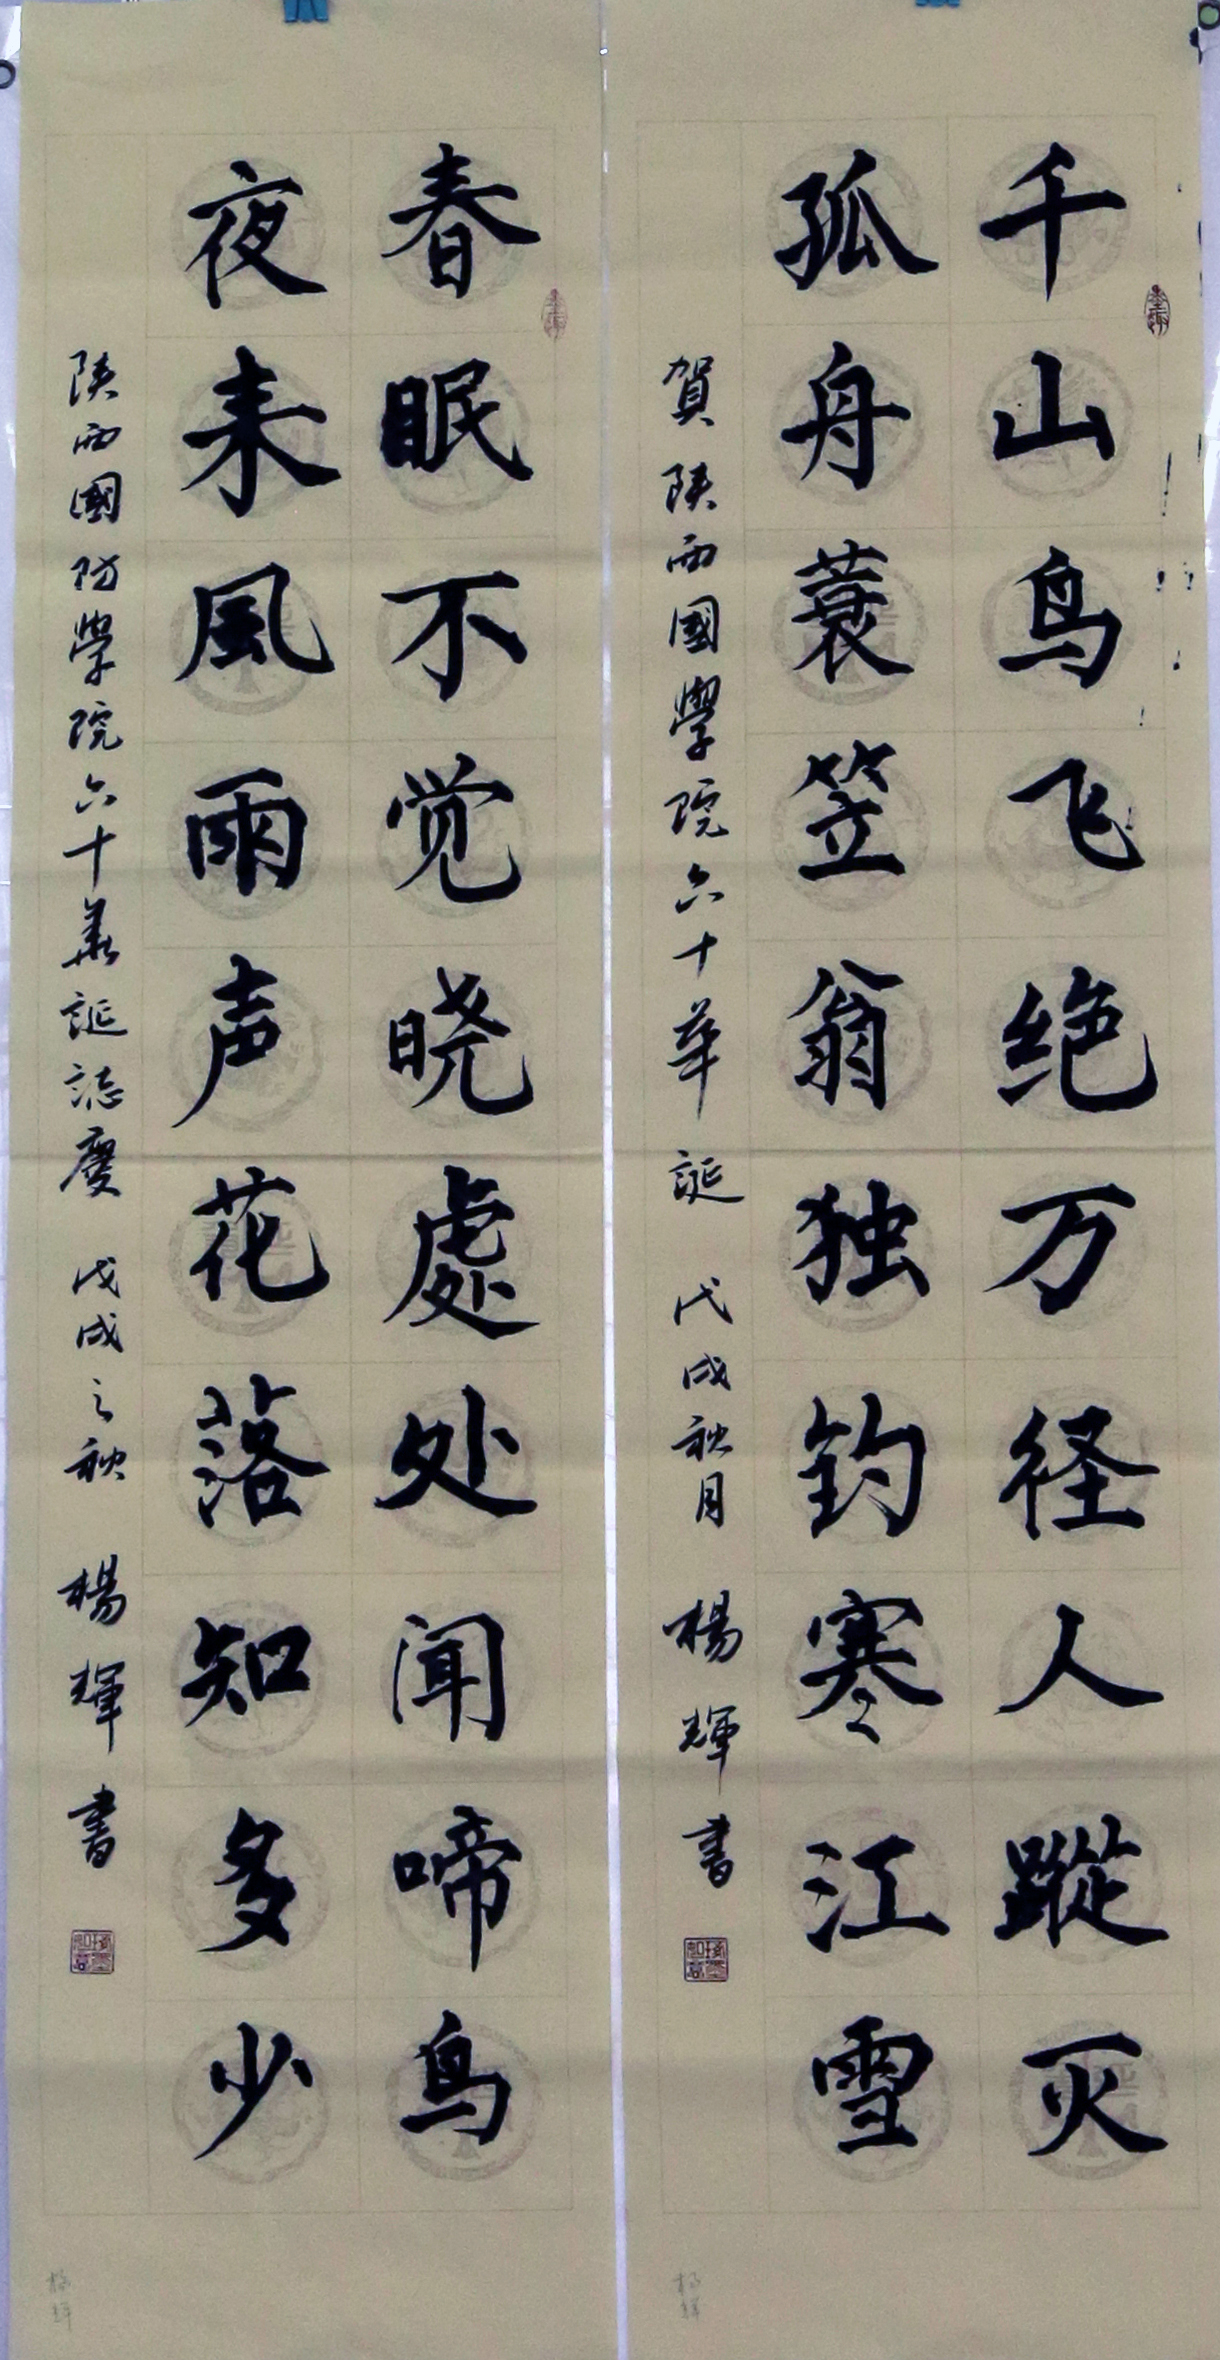 千山鸟飞绝万径人蹤灭
孤舟蓑笠翁独钓寒江雪
賀陕西國學院六十华誕 戊戌秋月 楊輝書
春眠不觉晓處处闻啼鸟
夜来風雨声花落知多少
陕西國防學院六十華誕誌慶 戊戌之秋 楊輝書